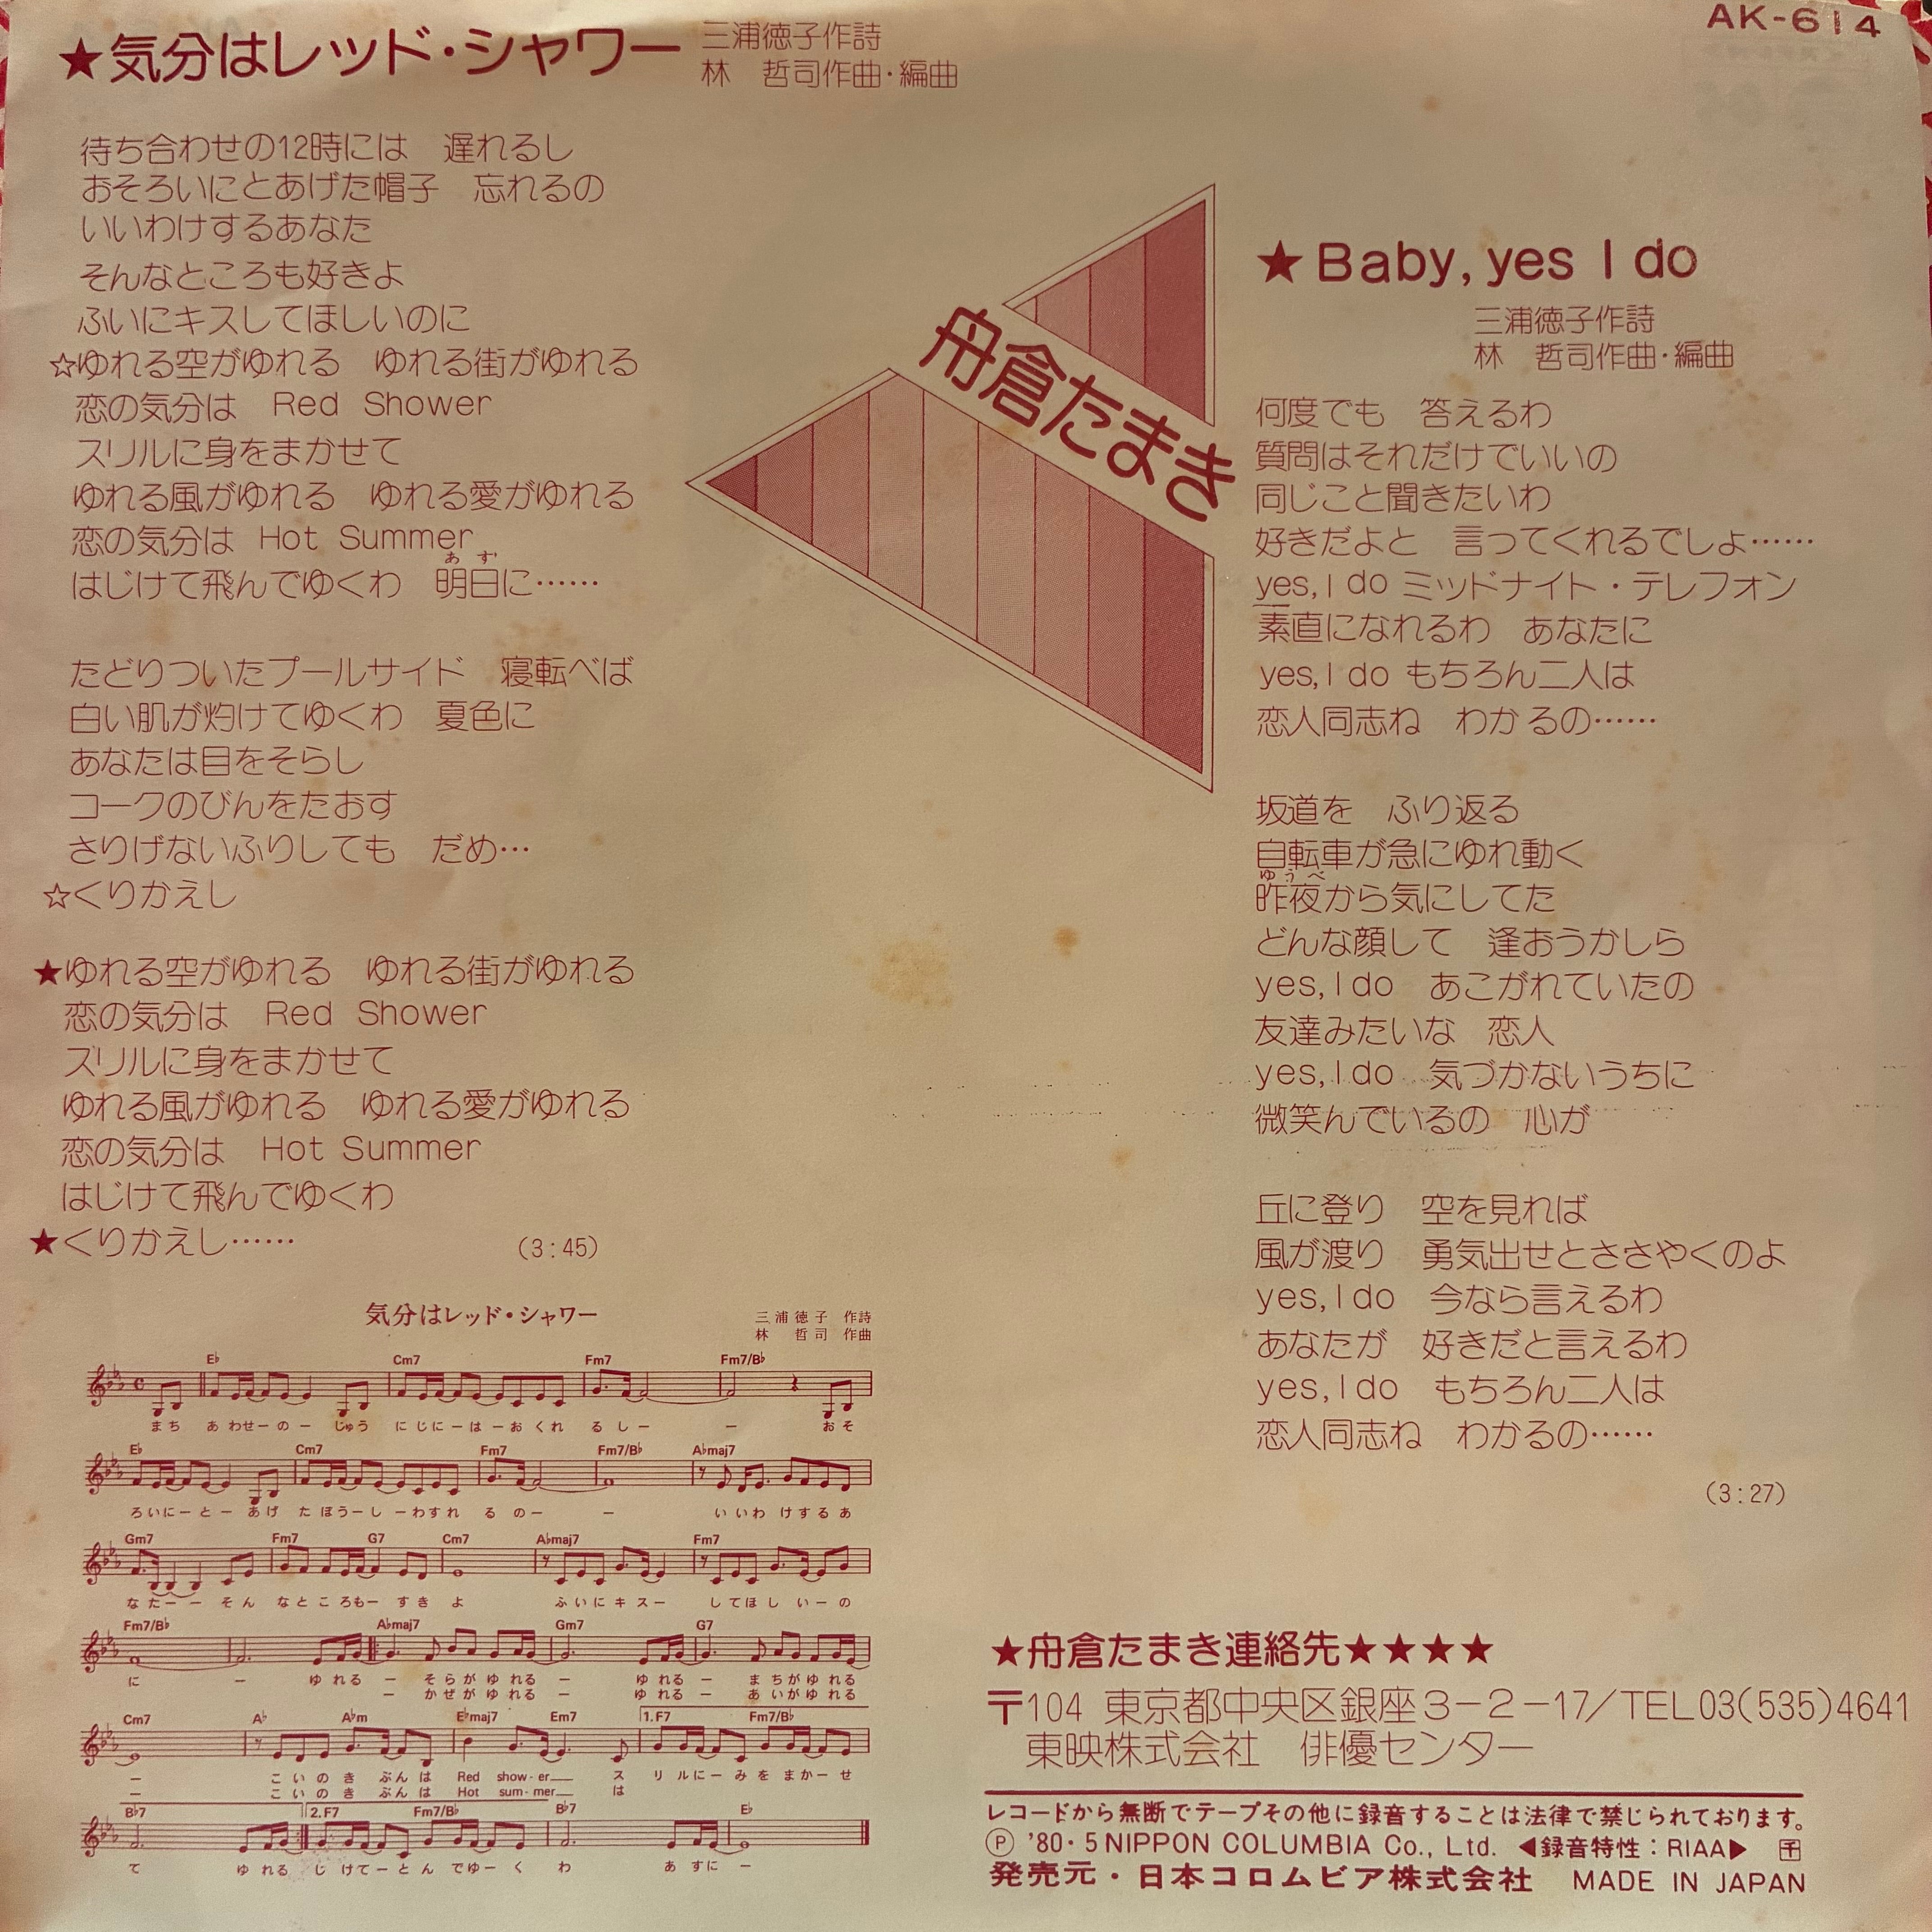 AK-614
★気分はレッド・シャワー
三浦徳子作詩
林　哲司作曲・編曲
待ち合わせの12時には　遅れるし
おそろいにとあげた帽子　忘れるの
いいわけするあなた
そんなところも好きよ
ふいにキスしてほしいのに
☆ゆれる空がゆれる　ゆれる街がゆれる
恋の気分は　Red Shower
スリルに身をまかせて
ゆれる風がゆれる　ゆれる愛がゆれる
恋の気分は　Hot Summer
あす
はじけて飛んでゆくわ　明日に……
たどりついたプールサイド　寝転べば
白い肌が灼けてゆくわ　夏色に
あなたは目をそらし
コークのびんをたおす
さりげないふりしても　だめ…
☆くりかえし
★ゆれる空がゆれる　ゆれる街がゆれる
恋の気分は　Red Shower
スリルに身をまかせて
ゆれる風がゆれる　ゆれる愛がゆれる
恋の気分は　Hot Summer
はじけて飛んでゆくわ
★くりかえし……
(3:45)
舟倉たまき
★Baby, yes I do
三浦徳子作詩
林　哲司作曲・編曲
何度でも　答えるわ
質問はそれだけでいいの
同じこと聞きたいわ
好きだよと　言ってくれるでしょ……
yes, I do ミッドナイト・テレフォン
素直になれるわ　あなたに
yes, I do もちろん二人は
恋人同志ね　わかるの……
坂道を　ふり返る
自転車が急にゆれ動く
ゆうべ
昨夜から気にしてた
どんな顔して　逢おうかしら
yes, I do　あこがれていたの
友達みたいな　恋人
yes, I do　気づかないうちに
微笑んでいるの　心が
丘に登り　空を見れば
風が渡り　勇気出せとささやくのよ
yes, I do　今なら言えるわ
あなたが　好きだと言えるわ
yes, I do　もちろん二人は
恋人同志ね　わかるの……
(3:27)
気分はレッド・シャワー
三浦徳子 作詩
林　哲司 作曲
E♭ Cm7 Fm7 Fm7/B♭
まち あわせーのー じゅう にじにーはーおくれ るしー ー おそ
E♭ Cm7 Fm7 Fm7/B♭ A♭maj7
ろいにーとー あげ たぼうーしーわすれ るのー ー いいわ けするあ
Gm7 Fm7 G7 Cm7 A♭maj7 Fm7
なたーー そん なところもー すき よ ふいにキスー してほし いーの
Fm7/B♭ A♭maj7 Gm7 G7
に ー ゆれる ー そらがゆれる ー ゆれる ー まちがゆれる
ー かぜがゆれる ー ゆれる ー あいがゆれる
Cm7 A♭ A♭m E♭maj7 Em7 1.F7 Fm7/B♭
ー こいのき ぶんは Red show-er ス リルにーみを まかーせ
ー こいのき ぶんは Hot sum-mer は
B♭7 2.F7 Fm7/B♭ B♭7 E♭
て ゆれる じけてーとん でゆーく わ あすに ー
★舟倉たまき連絡先★★★★
〒104 東京都中央区銀座3-2-17/TEL03(535)4641
東映株式会社　俳優センター
レコードから無断でテープその他に録音することは法律で禁じられております。
Ⓟ '80・5 NIPPON COLUMBIA Co., Ltd. ◀録音特性：RIAA▶
発売元・日本コロムビア株式会社　MADE IN JAPAN